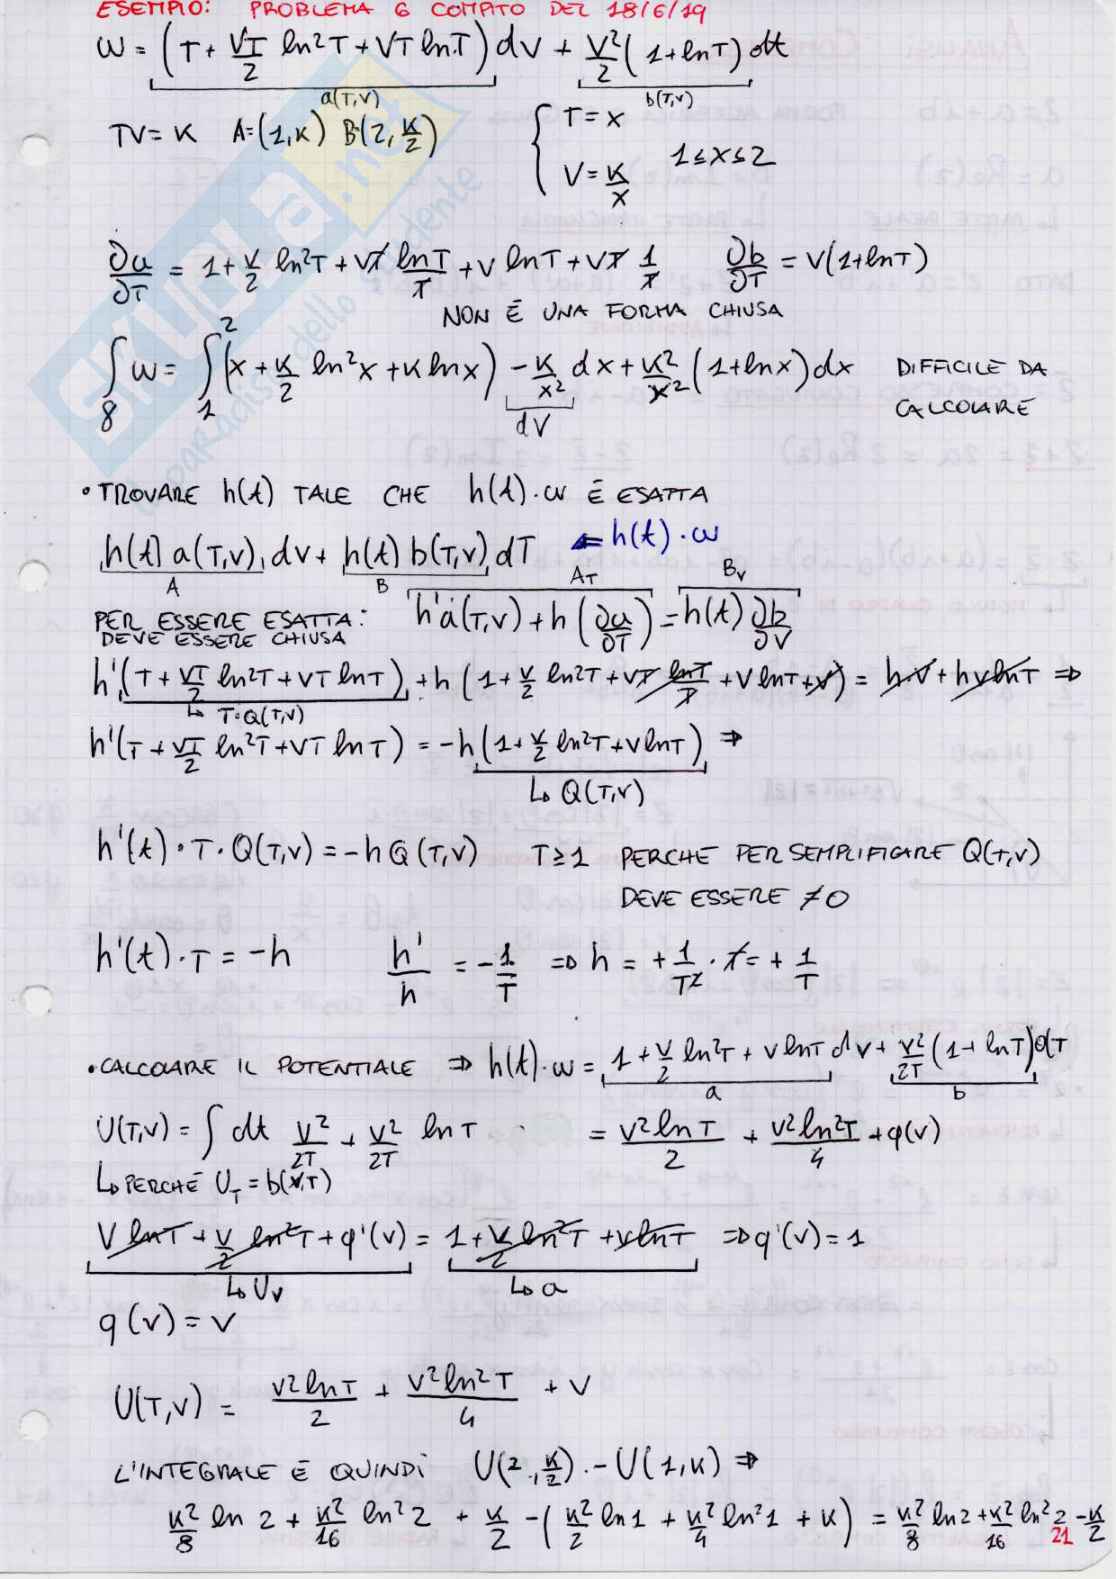 ESEMPIO: PROBLEMA 6 COMPITO DEL 18/6/19
ω = (T + VT/2 ln²T + VT lnT) dV + V²/2 (1 + lnT) dt
a(T,V) b(T,V)
TV = K A=(1,K) B(2, K/2) { T = x
V = K/x 1≤x≤2
∂a/∂T = 1 + V/2 ln²T + VT lnT/T + V lnT + VT 1/T ∂b/∂T = V(1+lnT)
NON È UNA FORMA CHIUSA
∫8 ω = ∫1 2 (x + K/2 ln²x + K lnx) - K/x² dx + K²/x² (1+lnx) dx DIFFICILE DA
dV CALCOLARE
• TROVARE h(t) TALE CHE h(t)·ω È ESATTA
h(t) a(T,V) dV + h(t) b(T,V) dT ⇐ h(t)·ω
A B A_T B_V
PER ESSERE ESATTA: h'a(T,V) + h (∂a/∂T) = h(t) ∂b/∂V
DEVE ESSERE CHIUSA
h'(T + VT/2 ln²T + VT lnT) + h (1 + V/2 ln²T + VT lnT/T + V lnT + V) = h·V + hV lnT ⇒
↳ T·Q(T,V)
h'(T + VT/2 ln²T + VT lnT) = -h (1 + V/2 ln²T + V lnT) ⇒
↳ Q(T,V)
h'(t)·T·Q(T,V) = -h Q(T,V) T≥1 PERCHE PER SEMPLIFICARE Q(T,V)
DEVE ESSERE ≠0
h'(t)·T = -h h'/h = -1/T ⇒ h = +1/T² · T = +1/T
• CALCOLARE IL POTENTIALE ⇒ h(t)·ω = 1 + V/2 ln²T + V lnT dV + V²/2T (1 + lnT) dT
a b
U(T,V) = ∫ dt V²/2T + V²/2T lnT = V² lnT/2 + V² ln²T/4 + φ(V)
↳ PERCHÈ U_T = b(V,T)
V lnT + V/2 ln²T + φ'(V) = 1 + V/2 ln²T + V lnT ⇒ φ'(V) = 1
↳ U_V ↳ a
φ(V) = V
U(T,V) = V² lnT/2 + V² ln²T/4 + V
L'INTEGRALE È QUINDI U(2, K/2) - U(1,K) ⇒
K²/8 ln 2 + K²/16 ln² 2 + K/2 - (K²/2 ln1 + K²/4 ln²1 + K) = K²/8 ln2 + K²/16 ln²2 - K/2
21
SKUOLA.net
il paradiso dello studente